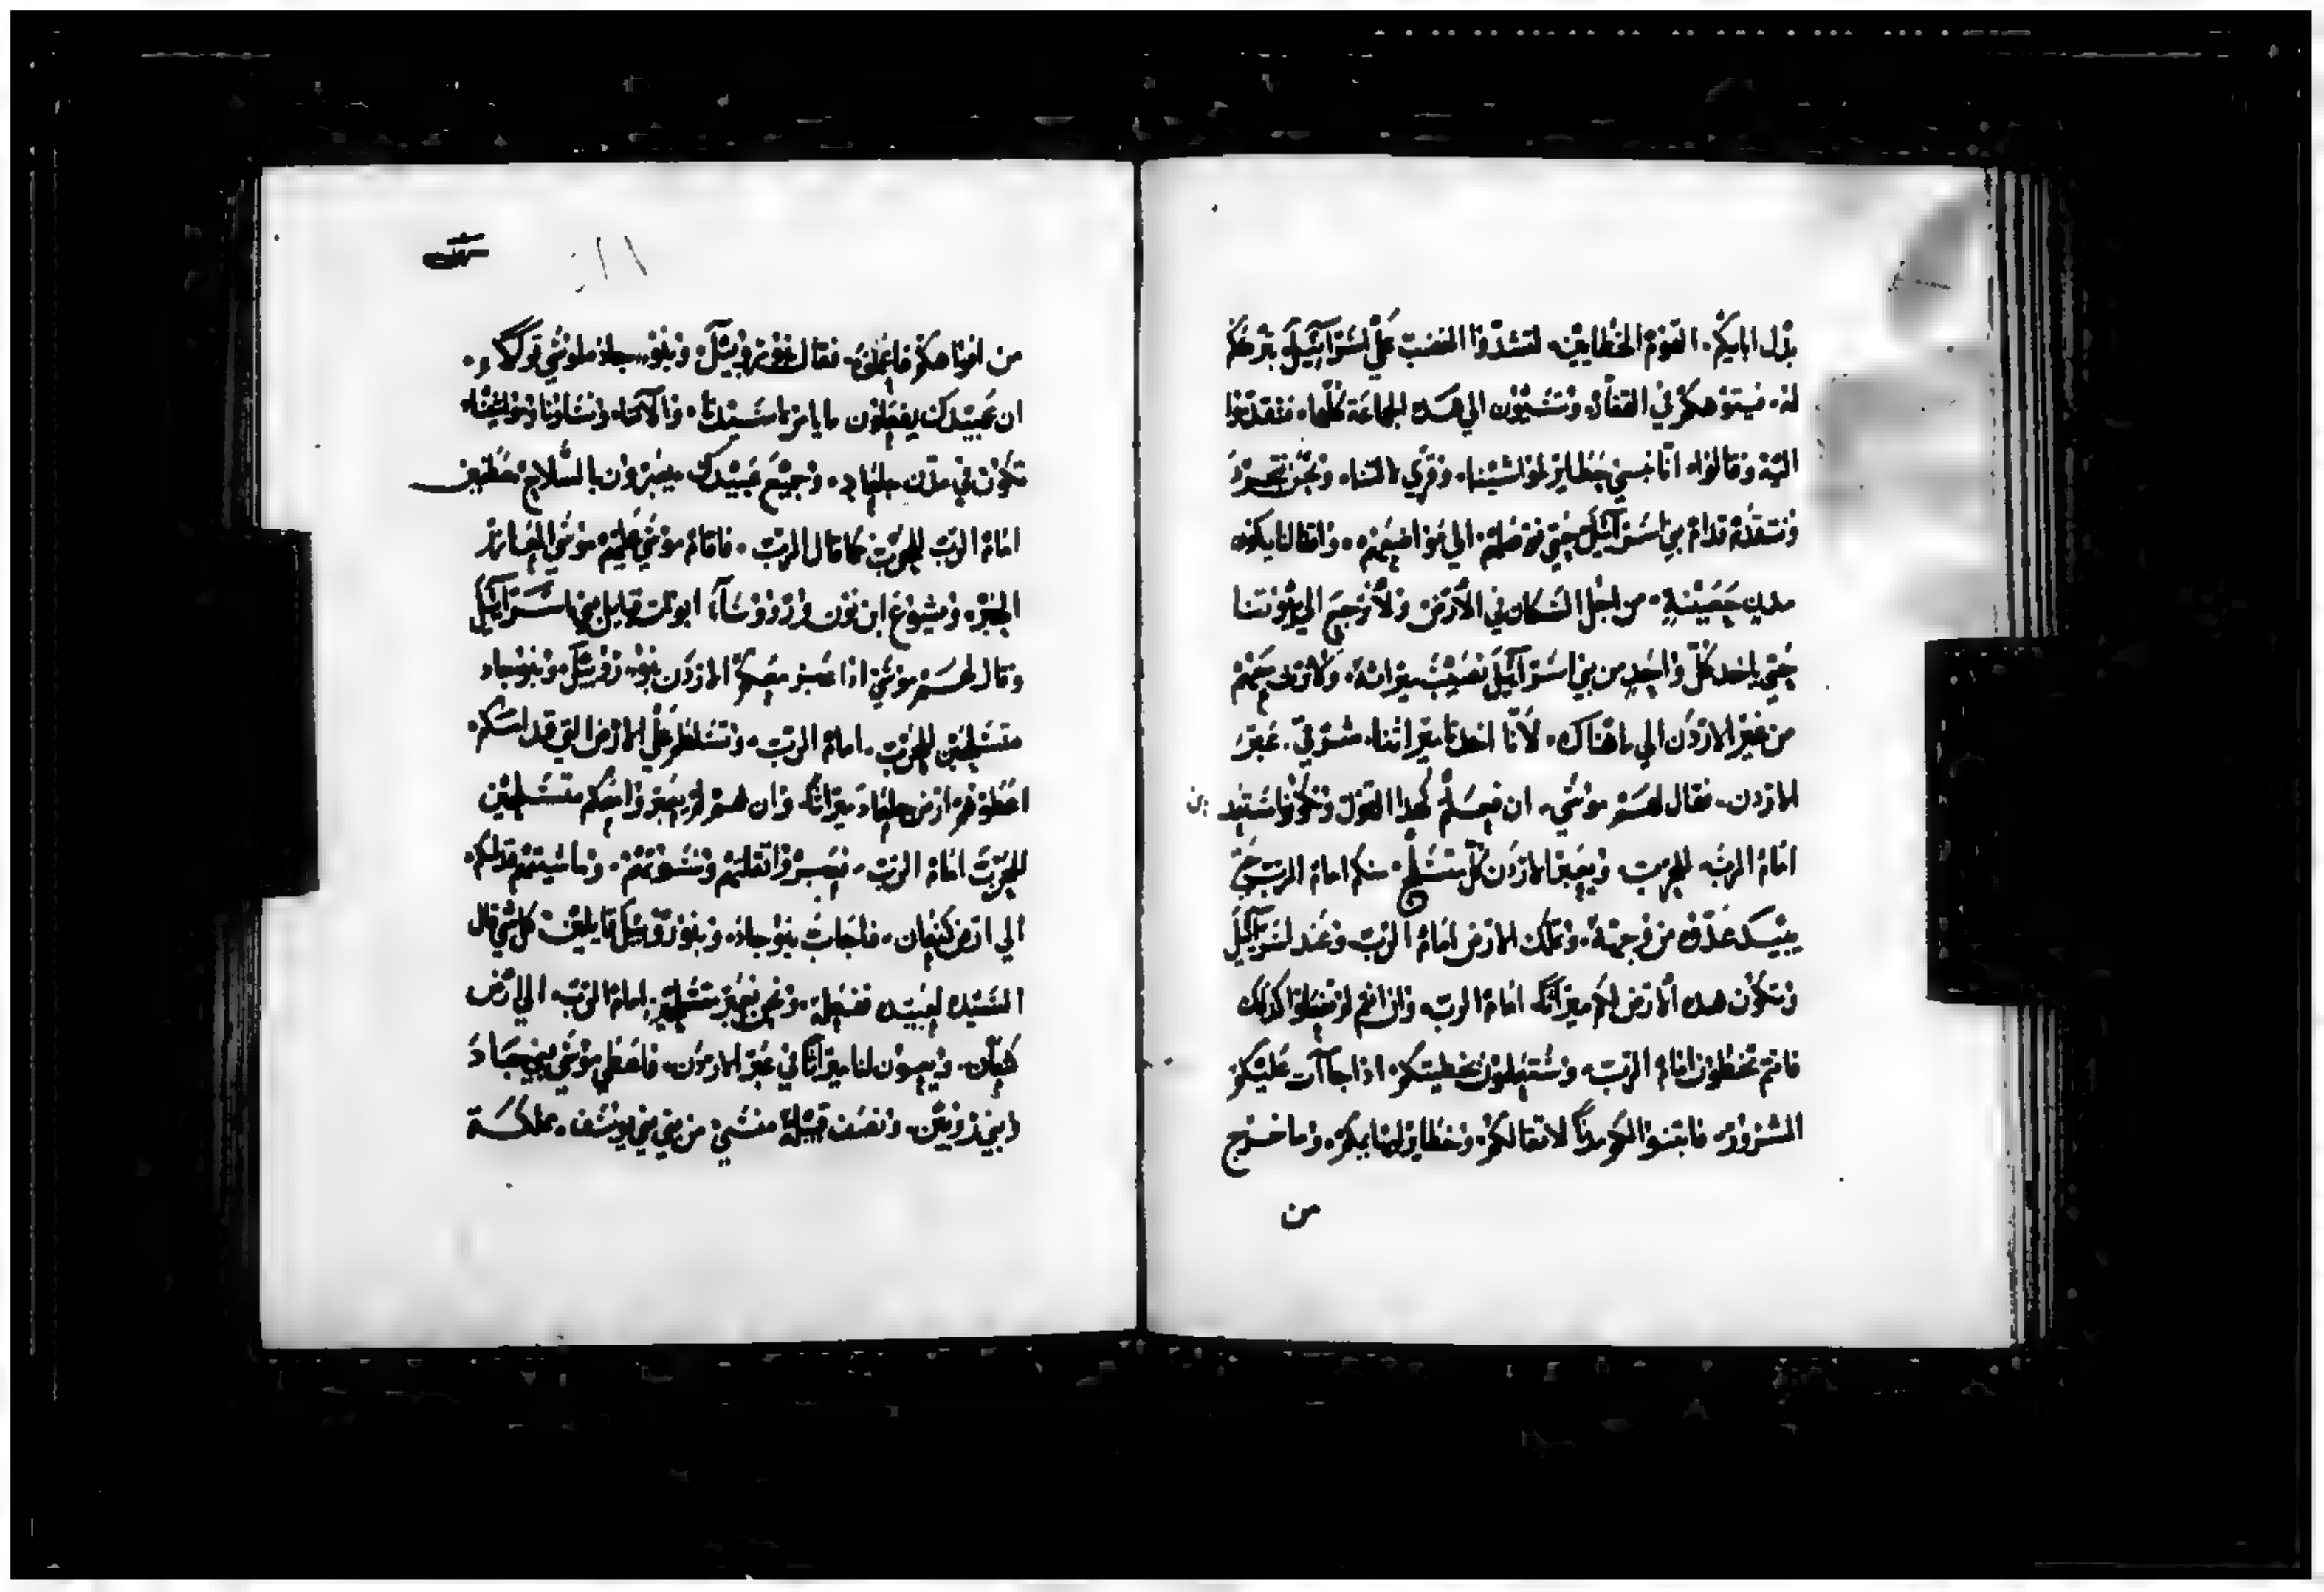 بدل ابايكم. القوم الخطايين. لتشدوا الغضب علي اسرآييل بترككم
له. فيتوهكم في القفار. وتنشيون الي هده الجماعة كلها. فتقدموا
اليه وقالوا. انا نبني حظاير لمواشينا. وقري لمتنا. ونحن نتجرد
ونتقدم قدام بني اسرآئيل حتي نوصلهم. الي مواضعهم. واطفالنا يكونو
مدن حصينة. من اجل السكان في الأرض ولا نرجع الي بيوتنا
حتي ياخد كل واحد من بني اسرآئيل نصيب ميراته. ولا نرت معهم
من عبر الاردن الي ماهناك. لأنا اخدنا ميراتنا. مشرقي. عبر
الاردن. فقال لهم موسي. ان فعلتم لهدا القول وتكونوا مستعدين
امام الرب. للحرب. ويعبر الاردن كل متسلح. منكم امام الرب حتي
يبيد عدوه من وجهه. وتملك الارض امام الرب. وعند اسرآئيل
وتكون هده الارض لكم ميراتًا. امام الرب. وان انتم لم تفعلوا كدلك
فانتم تخطون امام الرب. وستبلون بخطيتكم. ادا جاآت عليكم
الشرور. فابتنوا لكم مدنًا لاتقالكم. وحظاير لبهايمكم. وما خرج
من
من افواهكم فاعملوه. فقال بنوروبيل. وبنو جاد لموسي قولكا.
ان عبيدك يفعلون مايامر سيدنا. والاتنا. ونساونا ومواشينا
تكون في مدن جلعاد. وجميع عبيدك يعبرون بالسلاح مصطفين
امام الرب للحرب كما قال الرب. فاقام موسي عليهم موسي العازر
الحبر. ويشوع ابن نون وروؤسآء ابوات قبايل بني اسرآئيل
وقال لهم موسي ادا عبر معكم الاردن بنو روبيل وبنو جاد
متسلحين للحرب. امام الرب. وتسلطتم علي الارض التي قدامكم.
اعطوهم ارض جلعاد ميراتًا. وان هم لم يعبروا معكم متسلحين
للحرب امام الرب. فيعبروا اتقلتهم ونسوتهم. وماشيتهم قدامكم.
الي ارض كنعان. فاجاب بنو جاد. وبنو روبيل قايلين كل شي قال
السيد لعبيده نفعله. ونحن نعبر متسلحين. امام الرب. الي ارض
كنعان. ويعطون لنا ميراتًا في عبر الاردن. فاعطي موسي لبني جاد
وبني روبين. ونصف قبيلة منسي من بني بني يوسف. مملكة